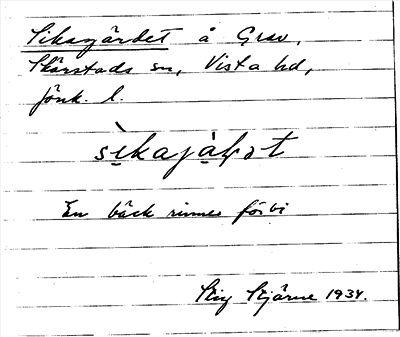 Sikagärdet å Grav,
Skärstads sn, Vista hd,
Jönk. l.
sìkajàḷət
En bäck rinner förbi
Stig Stjärne 1934.